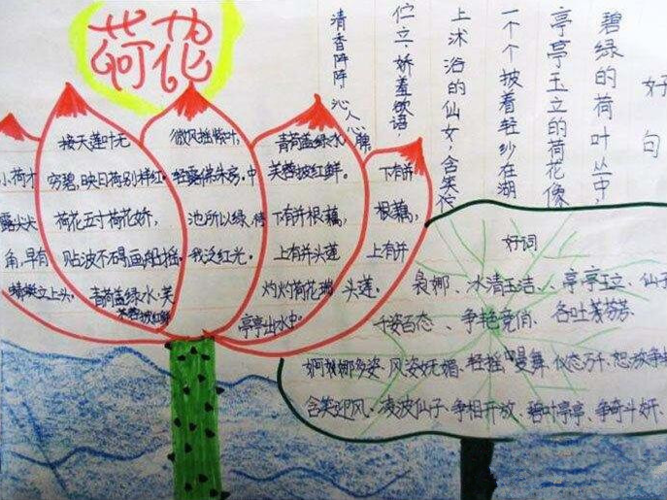 荷花
小荷才
露尖尖
角,早有
蜻蜓立上头。
接天莲叶无
穷碧,映日荷别样红。
荷花五寸荷花娇,
贴波不碍画船摇。
青荷盖绿水,芙
蓉披红鲜
微风摇紫叶,
轻露拂朱房,中
池所以绿,待
我泛红光。
青荷盖绿水,
芙蓉披红鲜。
下有并根藕,
上有并头莲
灼灼荷花瑞,
亭亭出水中。
下有并
根藕,
上有并
头莲。
好句
碧绿的荷叶丛中,
亭亭玉立的荷花像
一个个披着轻纱在湖
上沐浴的仙女,含笑
伫立,娇羞欲语
清香阵阵 沁人心脾
好词
袅娜、冰清玉洁、亭亭玉立、仙
千姿百态、争艳竞俏、各吐芬芳
婀娜多姿、风姿妩媚、轻摇曼舞、仪态万千、怒放争
含笑迎风、凌波仙子、争相开放、碧叶亭亭、争奇斗妍